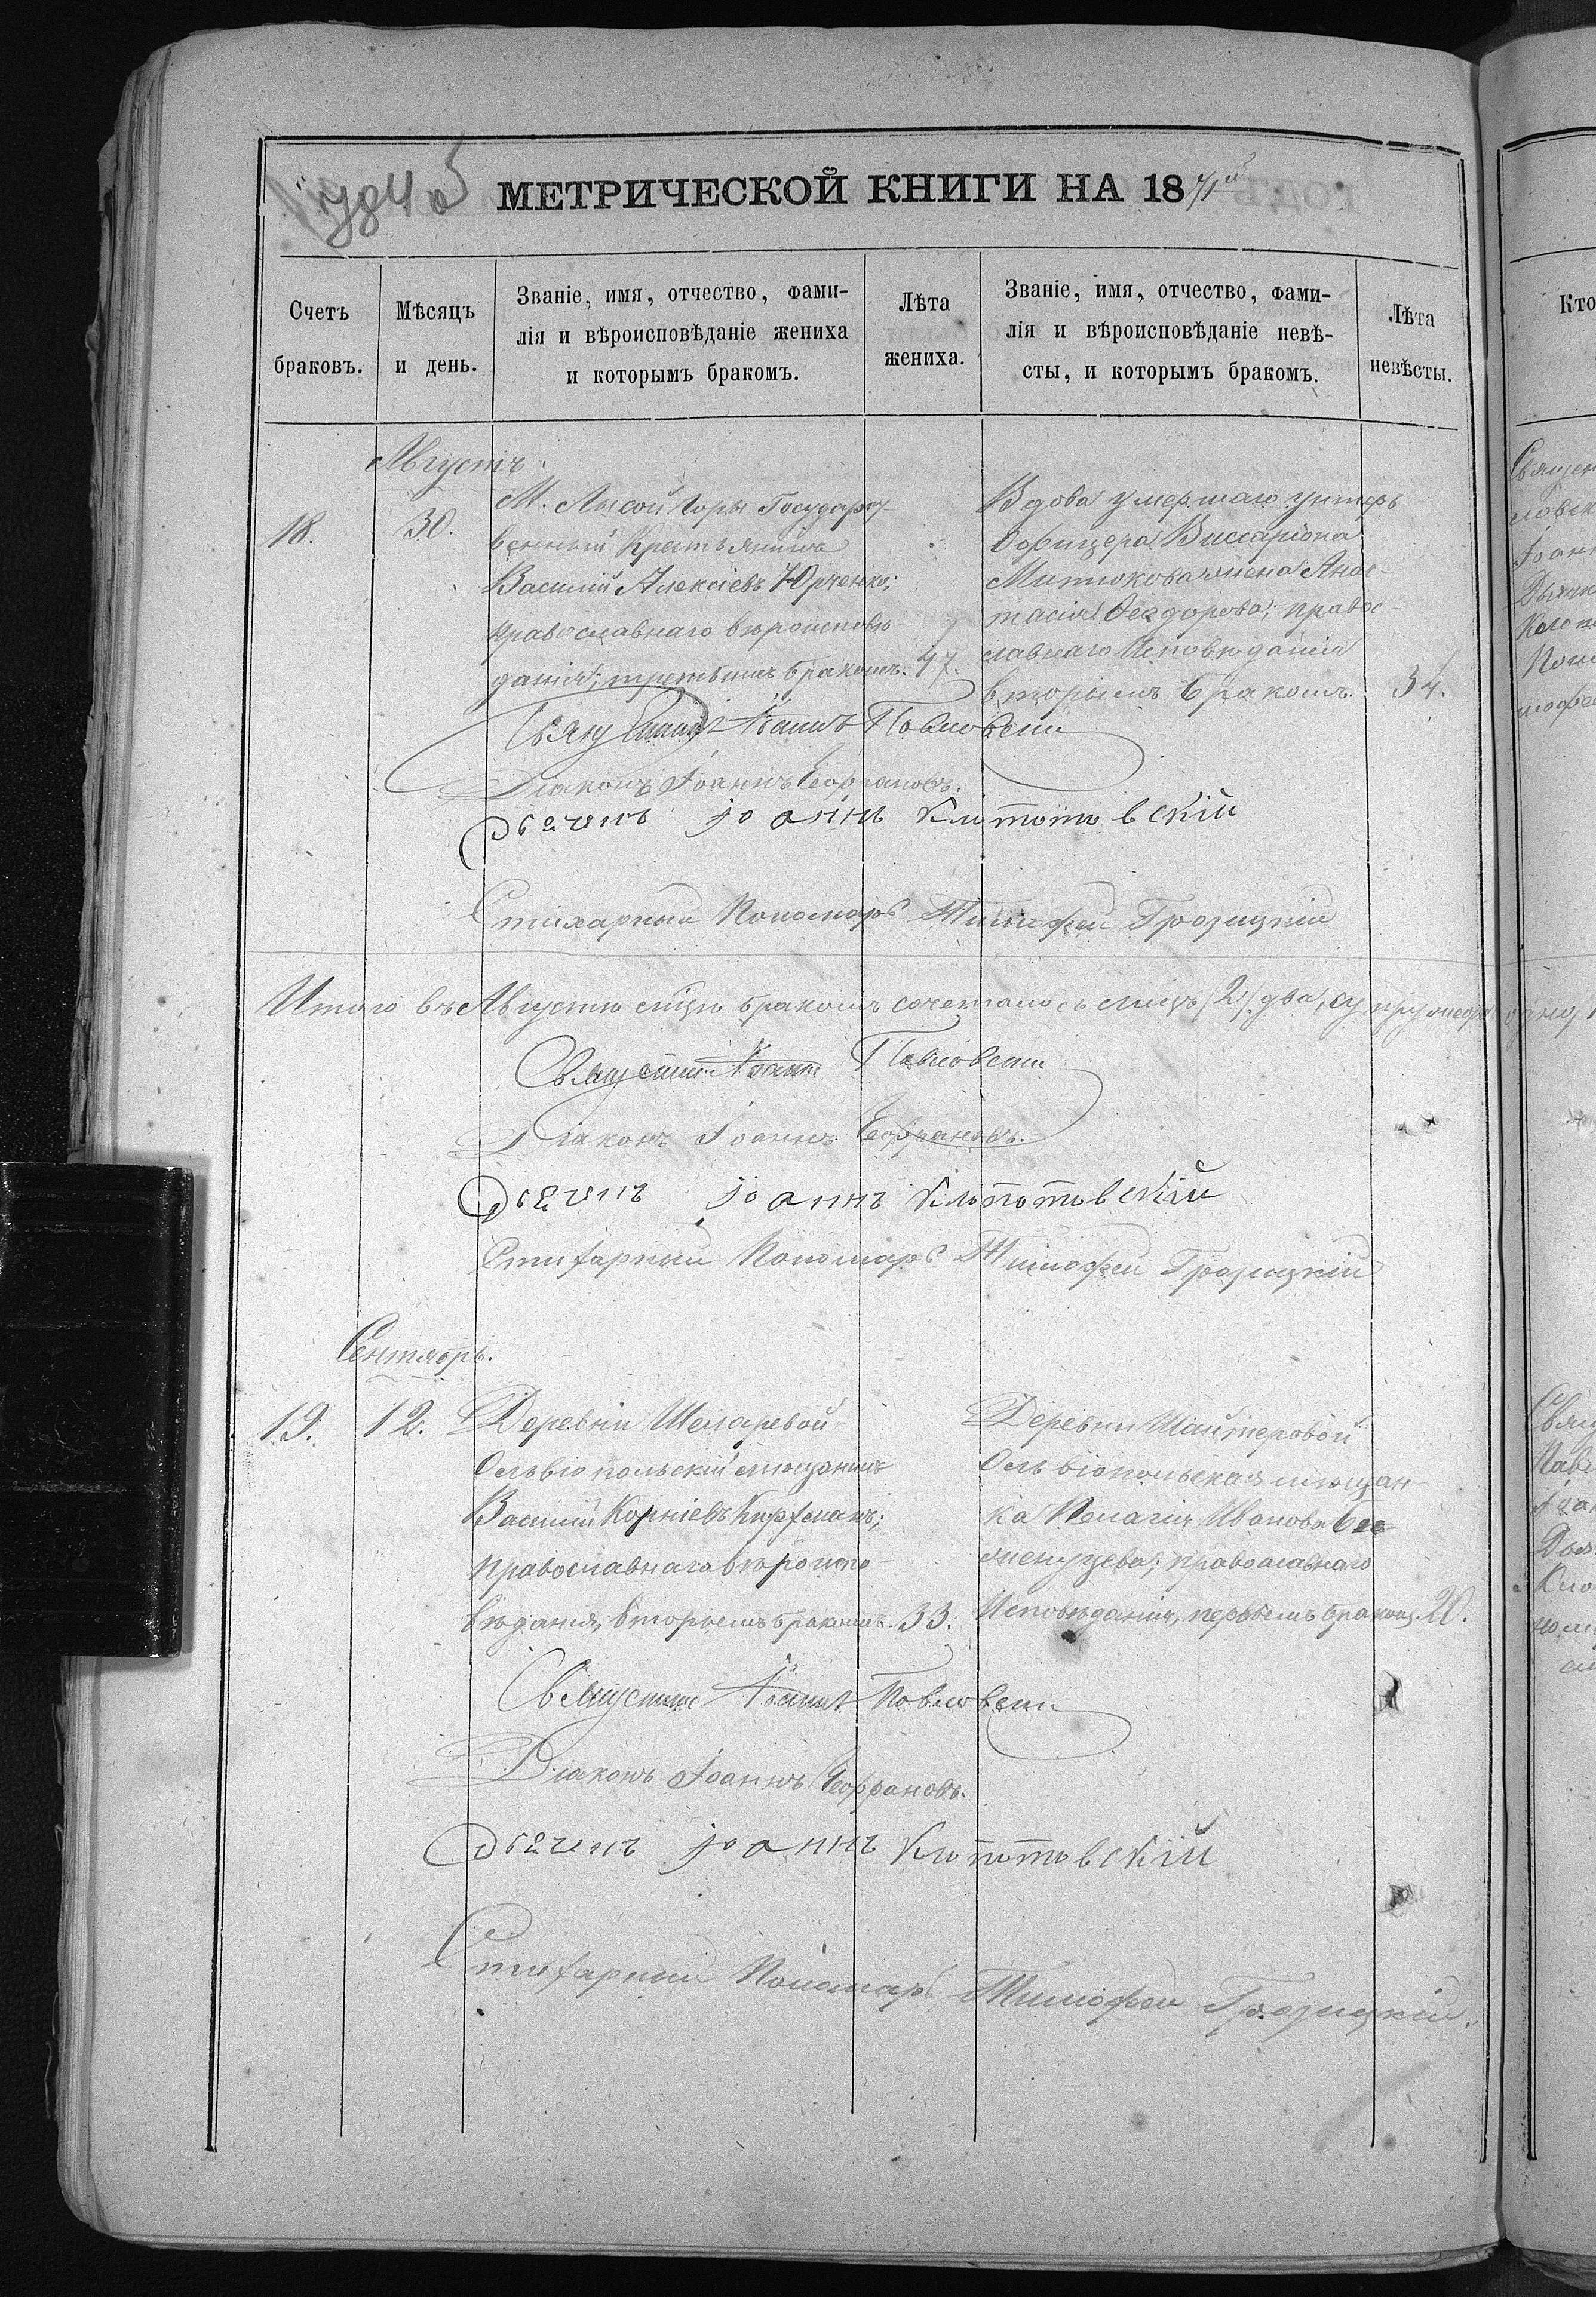 784 об
МЕТРИЧЕСКОЙ КНИГИ НА 1871й
Счетъ браковъ.
Мѣсяцъ и день.
Званіе, имя, отчество, фами-
лія и вѣроисповѣданіе жениха
и которымъ бракомъ.
Лѣта жениха.
Званіе, имя, отчество, фами-
лія и вѣроисповѣданіе невѣ-
сты, и которымъ бракомъ.
Лѣта невѣсты.
Августъ.
18.
30.
М. Лысой Горы Государст
венный Крестьянинъ
Василій Алексіевъ Юрченко;
православнаго вѣроисповѣ-
данія; третьимъ бракомъ.
47.
Вдова умершаго унтеръ
Офицера Виссаріона
Митюкова жена Анас-
тасія Феодорова; правос-
лавнаго Исповѣданія
вторымъ бракомъ.
34.
Священникъ Іоаннъ Павловскій
Діаконъ Іоаннъ
Дьячекъ Іоаннъ Клопотовскій
Стихарный Пономарь Тимофей Грозицкій
Итого въ Августѣ мцѣ бракомъ сочеталось лицъ (2) два, супружество
Священникъ Іоаннъ Павловскій
Діаконъ Іоаннъ
Дьячекъ Іоаннъ Клопотовскій
Стихарный Пономарь Тимофей Грозицкій
Сентябрь.
19.
12.
Деревни
Ольвіопольскій мѣщанинъ
Василій Корніевъ
православнаго вѣроиспо-
вѣданія, вторымъ бракомъ.
33.
Деревни
Ольвіопольская мѣщан-
ка Пелагія Иванова
православнаго
Исповѣданія, первымъ бракомъ.
20.
Священникъ Іоаннъ Павловскій
Діаконъ Іоаннъ
Дьячекъ Іоаннъ Клопотовскій
Стихарный Пономарь Тимофей Грозицкій.
Кто